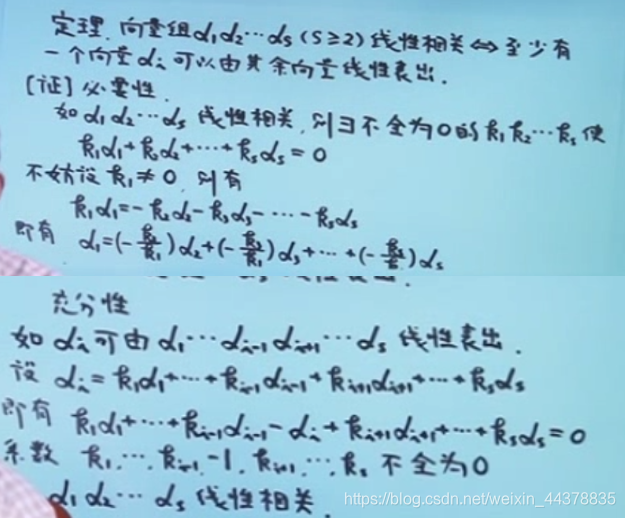 定理. 向量组α₁α₂⋯αₛ(s≥2)线性相关⇔至少有
一个向量αᵢ可以由其余向量线性表出.
[证]必要性.
如α₁α₂⋯αₛ线性相关,则∃不全为0的k₁k₂⋯kₛ使
k₁α₁+k₂α₂+⋯+kₛαₛ=0
不妨设k₁≠0,则有
k₁α₁=-k₂α₂-k₃α₃-⋯-kₛαₛ
即有 α₁=(-k₂/k₁)α₂+(-k₃/k₁)α₃+⋯+(-kₛ/k₁)αₛ
充分性
如αᵢ可由α₁⋯αᵢ₋₁αᵢ₊₁⋯αₛ线性表出.
设 αᵢ=k₁α₁+⋯+kᵢ₋₁αᵢ₋₁+kᵢ₊₁αᵢ₊₁+⋯+kₛαₛ
即有 k₁α₁+⋯+kᵢ₋₁αᵢ₋₁-αᵢ+kᵢ₊₁αᵢ₊₁+⋯+kₛαₛ=0
系数 k₁,⋯,kᵢ₋₁,-1,kᵢ₊₁,⋯,kₛ不全为0
α₁α₂⋯αₛ线性相关.
https://blog.csdn.net/weixin_44378835